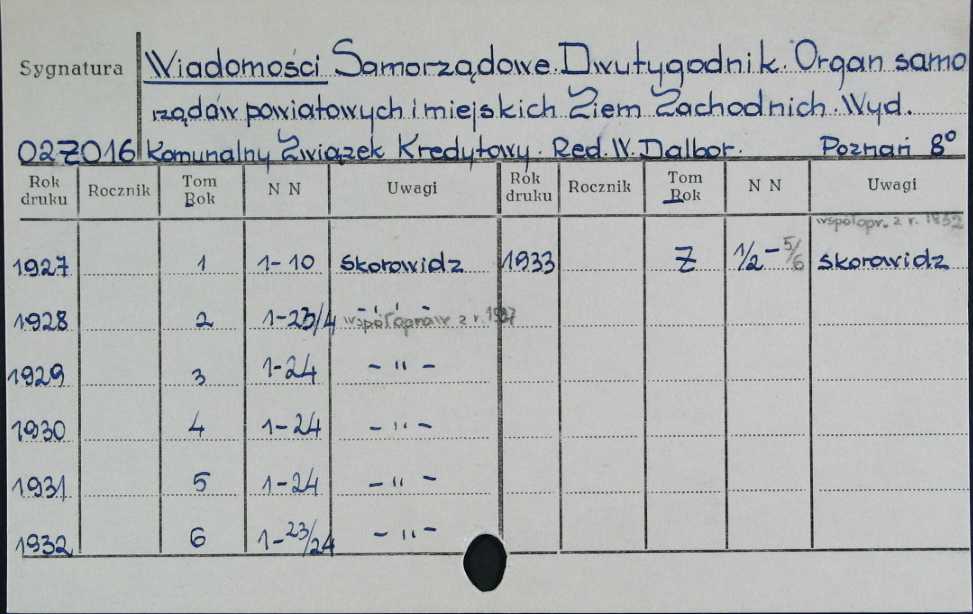 Sygnatura Wiadomości Samorządowe. Dwutygodnik. Organ samo
rządów powiatowych i miejskich Ziem Zachodnich. Wyd.
027016 Komunalny Związek Kredytowy. Red. W. Dalbor. Poznań 8°
Rok druku Rocznik Tom Rok N N Uwagi Rok druku Rocznik Tom Rok N N Uwagi
współopr. z r. 1932
1927 1 1-10 Skorowidz 1933 7 1/2-5/6 Skorowidz
1928 2 1-23/4 -"- współopraw z r. 1927
1929 3 1-24 -"-
1930 4 1-24 -"-
1931 5 1-24 -"-
1932 6 1-23/24 -"-